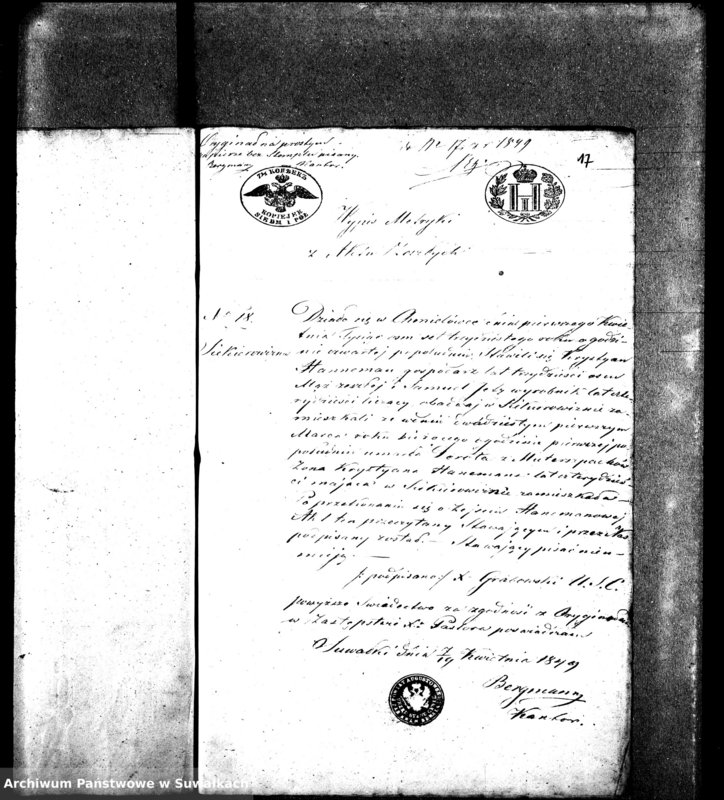 Oryginał na prostym
papierze bez stempla pisany.
Bergmann Kantor.
do № 17 r. 1849
17
7½ КОПѢЕКЪ
KOPIEJEK
SIEDM I PÓŁ
Wypis Metryki
z Aktu Zeszłych
№ 18.
Siekierowizna
Działo się w Chmielówce dnia pierwszego Kwie-
tnia tysiąc osm set trzydziestego roku o godzi-
nie czwartej po południu. Stawili się Krystyan
Hanneman gospodarz lat trzydzieści osm
Mąż zeszłej i Samuel wyrobnik lat czter-
dzieści liczący obadwaj w Siekierowiznie za-
mieszkali że w dniu dwudziestym pierwszym
Marca roku bieżącego o godzinie pierwszej po
południu umarła Dorota z
Żona Krystyana Hannemana lat czterdzie-
ści mająca w Siekierowiznie zamieszkała
Po przekonaniu się o zejściu Hannemanowej
Akt ten przeczytany Stawającym i przez Nas
podpisany został. Stawający pisać nieu-
mieją.
/: podpisano:/ X. Grabowski U.S.C.
powyższe Świadectwo za zgodność z Oryginałem
w Zastępstwie X. Pastora poświadczam
Suwałki dnia 7/19 Kwietnia 1849
Bergmann
Kantor.
Archiwum Państwowe w Suwałkach